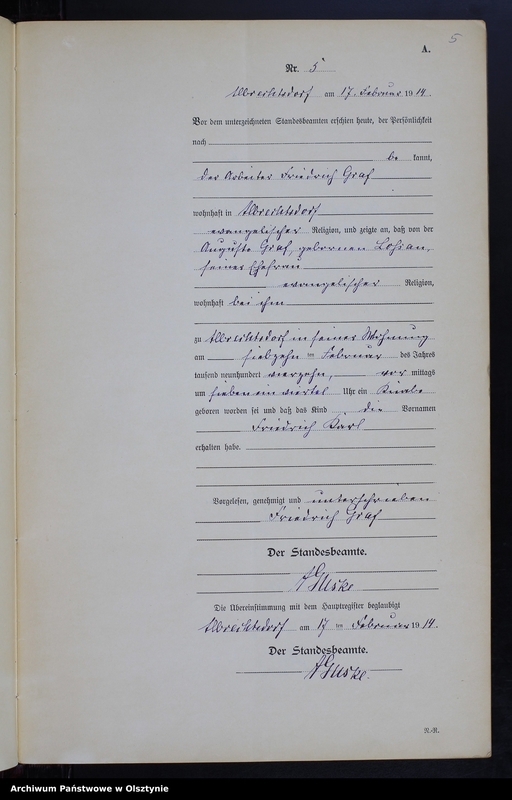 5
A.
Nr. 5
Albrechtsdorf am 17. Februar 1914.
Vor dem unterzeichneten Standesbeamten erschien heute, der Persönlichkeit
nach
be kannt,
der Arbeiter Friedrich Graf
wohnhaft in Albrechtsdorf
evangelischer Religion, und zeigte an, daß von der
Auguste Graf, geborenen
seiner Ehefrau
evangelischer Religion,
wohnhaft bei ihm
zu Albrechtsdorf in seiner Wohnung
am siebzehn ten Februar des Jahres
tausend neunhundert vierzehn, vor mittags
um sieben ein viertel Uhr ein Knabe
geboren worden sei und daß das Kind die Vornamen
Friedrich Karl
erhalten habe.
Vorgelesen, genehmigt und unterschrieben
Friedrich Graf
Der Standesbeamte.
Guske
Die Übereinstimmung mit dem Hauptregister beglaubigt
Albrechtsdorf am 17 ten Februar 1914.
Der Standesbeamte.
Guske.
Archiwum Państwowe w Olsztynie